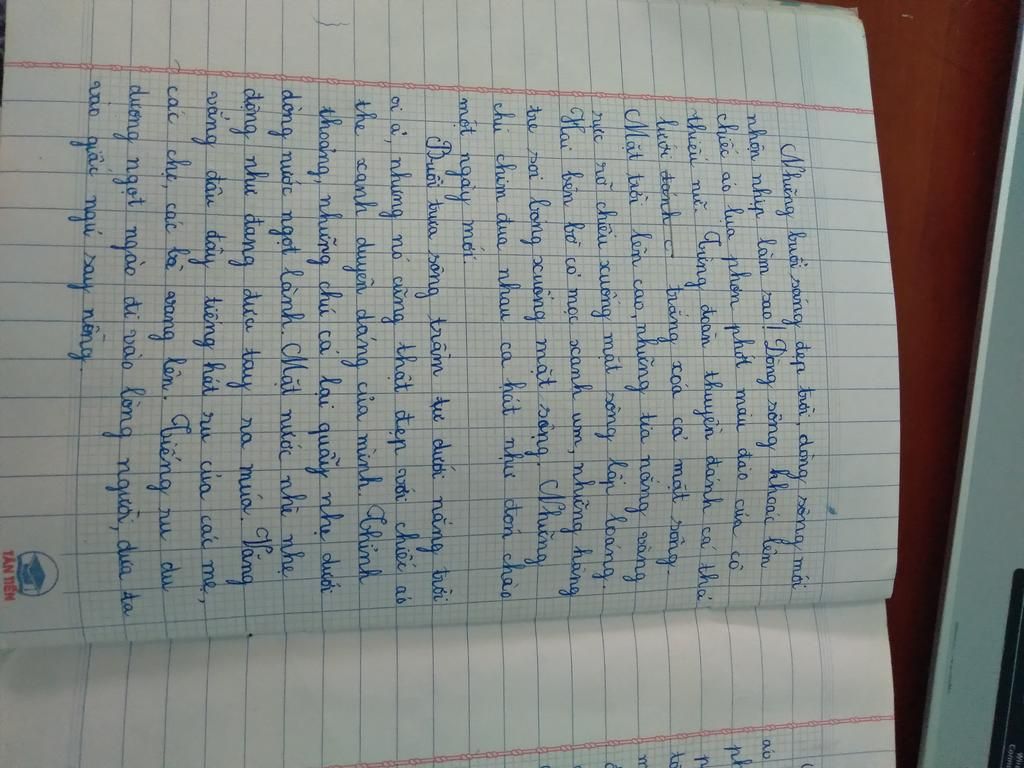 Những buổi sáng đẹp trời, dòng sông mới
nhộn nhịp làm sao! Dòng sông khoác lên
chiếc áo lụa phơn phớt màu đào của cô
thiếu nữ. Từng đoàn thuyền đánh cá thả
lưới đánh c trắng xoá cả mặt sông.
Mặt trời lên cao, những tia nắng vàng
rực rỡ chiếu xuống mặt sông lấp loáng.
Hai bên bờ cỏ mọc xanh um, những hàng
tre soi bóng xuống mặt sông. Những
chú chim đua nhau ca hát như đón chào
một ngày mới.
Buổi trưa sông trầm tư dưới nắng trời
oi ả, nhưng nó cũng thật đẹp với chiếc áo
the xanh duyên dáng của mình. Thỉnh
thoảng, những chú cá lại quẫy nhẹ dưới
dòng nước ngọt lành. Mặt nước nhè nhẹ
động như đang đưa tay ra múa. Văng
vẳng đâu đây tiếng hát ru của các mẹ,
các chị, các bà vang lên. Tiếng ru du
dương ngọt ngào đi vào lòng người, đưa ta
vào giấc ngủ say nồng.
TÂN TIẾN
áo